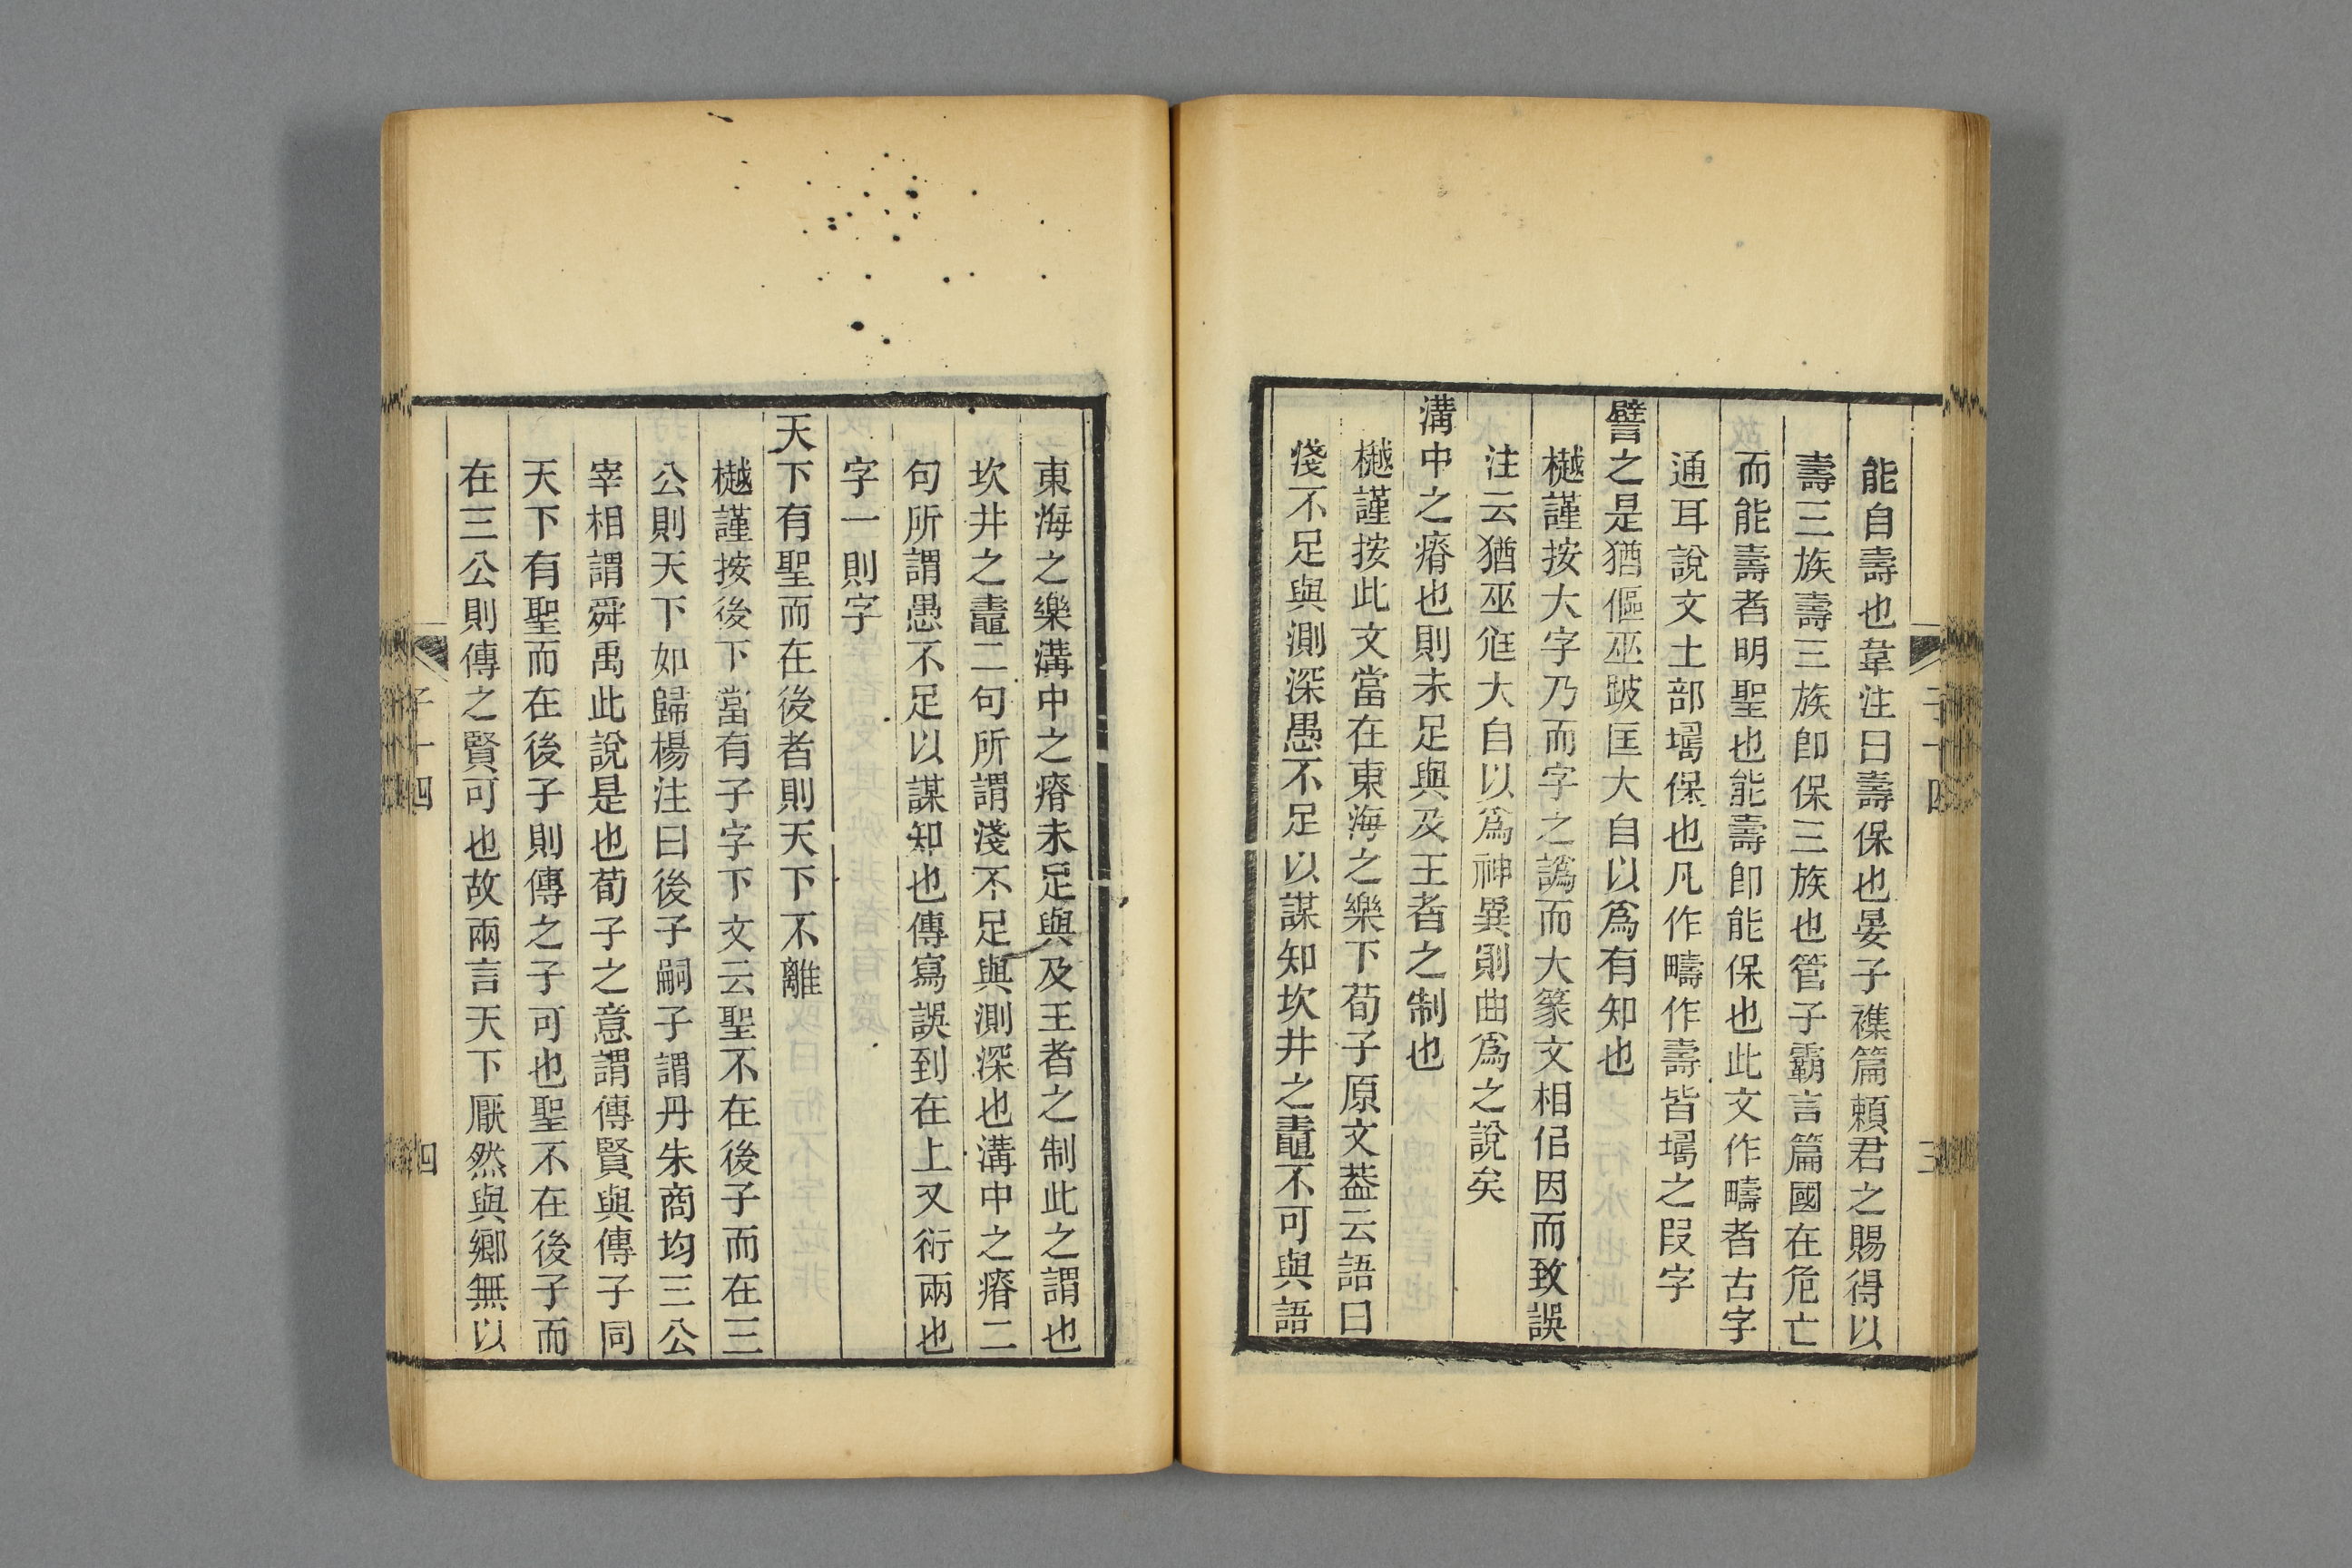 能自壽也韋注曰壽保也晏子襍篇賴君之賜得以
壽三族壽三族卽保三族也管子霸言篇國在危亡
而能壽者明聖也能壽卽能保也此文作疇者古字
通耳說文土部㙑保也凡作疇作壽皆㙑之叚字
譬之是猶傴巫跛匡大自以爲有知也
樾謹按大字乃而字之譌而大篆文相佀因而致誤
注云猶巫尪大自以爲神異則曲爲之說矣
溝中之瘠也則未足與及王者之制也
樾謹按此文當在東海之樂下荀子原文葢云語曰
淺不足與測深愚不足以謀知坎井之鼃不可與語
子十四
三
東海之樂溝中之瘠未足與及王者之制此之謂也
坎井之鼃二句所謂淺不足與測深也溝中之瘠二
句所謂愚不足以謀知也傳寫誤到在上又衍兩也
字一則字
天下有聖而在後者則天下不離
樾謹按後下當有子字下文云聖不在後子而在三
公則天下如歸楊注曰後子嗣子謂丹朱商均三公
宰相謂舜禹此說是也荀子之意謂傳賢與傳子同
天下有聖而在後子則傳之子可也聖不在後子而
在三公則傳之賢可也故兩言天下厭然與鄉無以
子十四
四